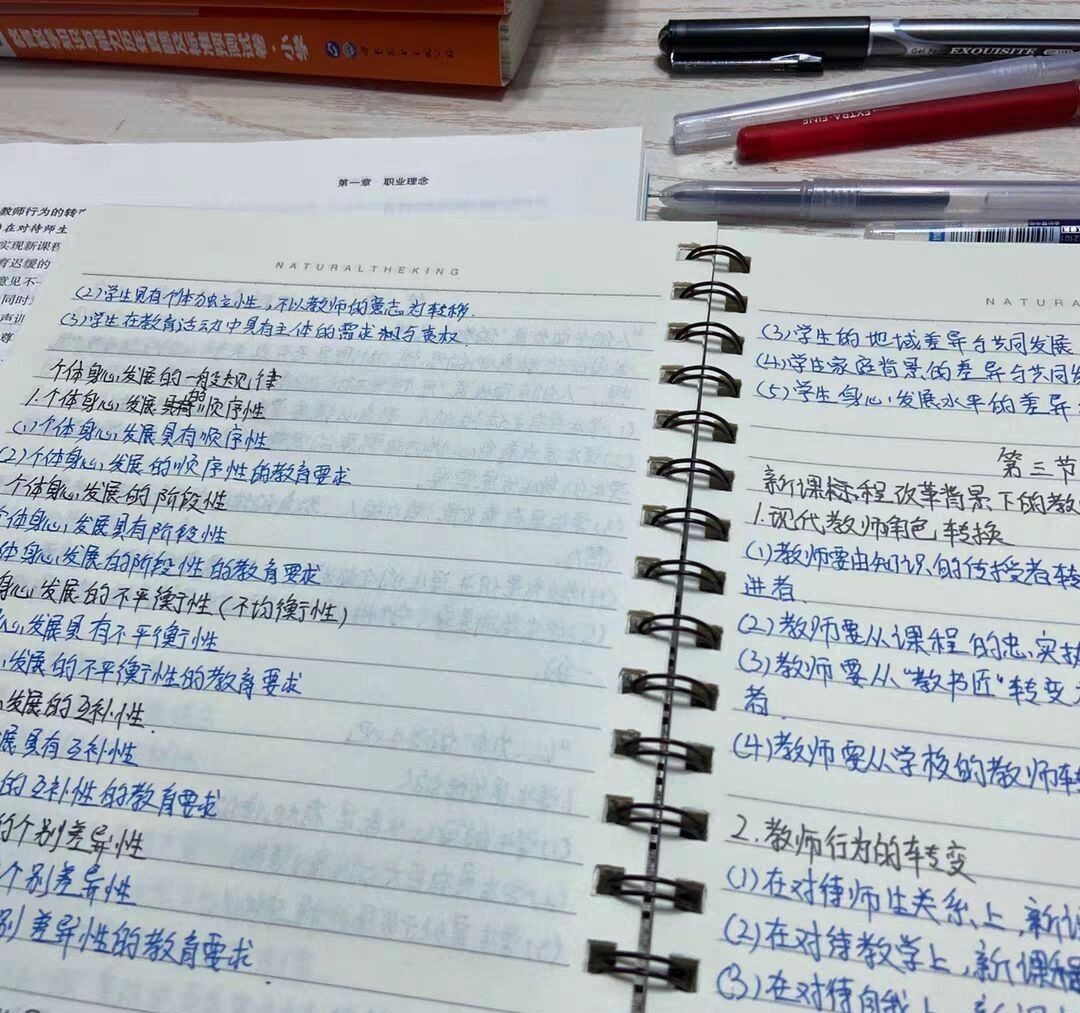 教育教学知识与能力历年真题及标准预测试卷·小学
EXQUISITE
EXTRA-FINE
第一章 职业理念
教师行为的转
在对待师生
实现新课程
育迟缓的
意见不一
同时
声训
尊
NATURALTHEKING
(2)学生具有个体独立性,不以教师的意志为转移.
(3)学生在教育活动中具有主体的需求和与责权
个体身心发展的一般规律
1.个体身心发展的顺序性
(1)个体身心发展具有顺序性
(2)个体身心发展的顺序性的教育要求
个体身心发展的阶段性
个体身心发展具有阶段性
体身心发展的阶段性的教育要求
身心发展的不平衡性(不均衡性)
心发展具有不平衡性
发展的不平衡性的教育要求
发展的互补性.
展具有互补性
的互补性的教育要求
的个别差异性
个别差异性
别差异性的教育要求.
NATURA
(3)学生的地域差异与共同发展
(4)学生家庭背景的差异与共同发
(5)学生身心发展水平的差异
第三节
新课标程改革背景下的教
1.现代教师角色转换
(1)教师要由知识的传授者转
进者.
(2)教师要从课程的忠实执
(3)教师要从"教书匠"转变
者.
(4)教师要从学校的教师转
2.教师行为的转变
(1)在对待师生关系上,新课
(2)在对待教学上,新课程
(3)在对待自我上,新课